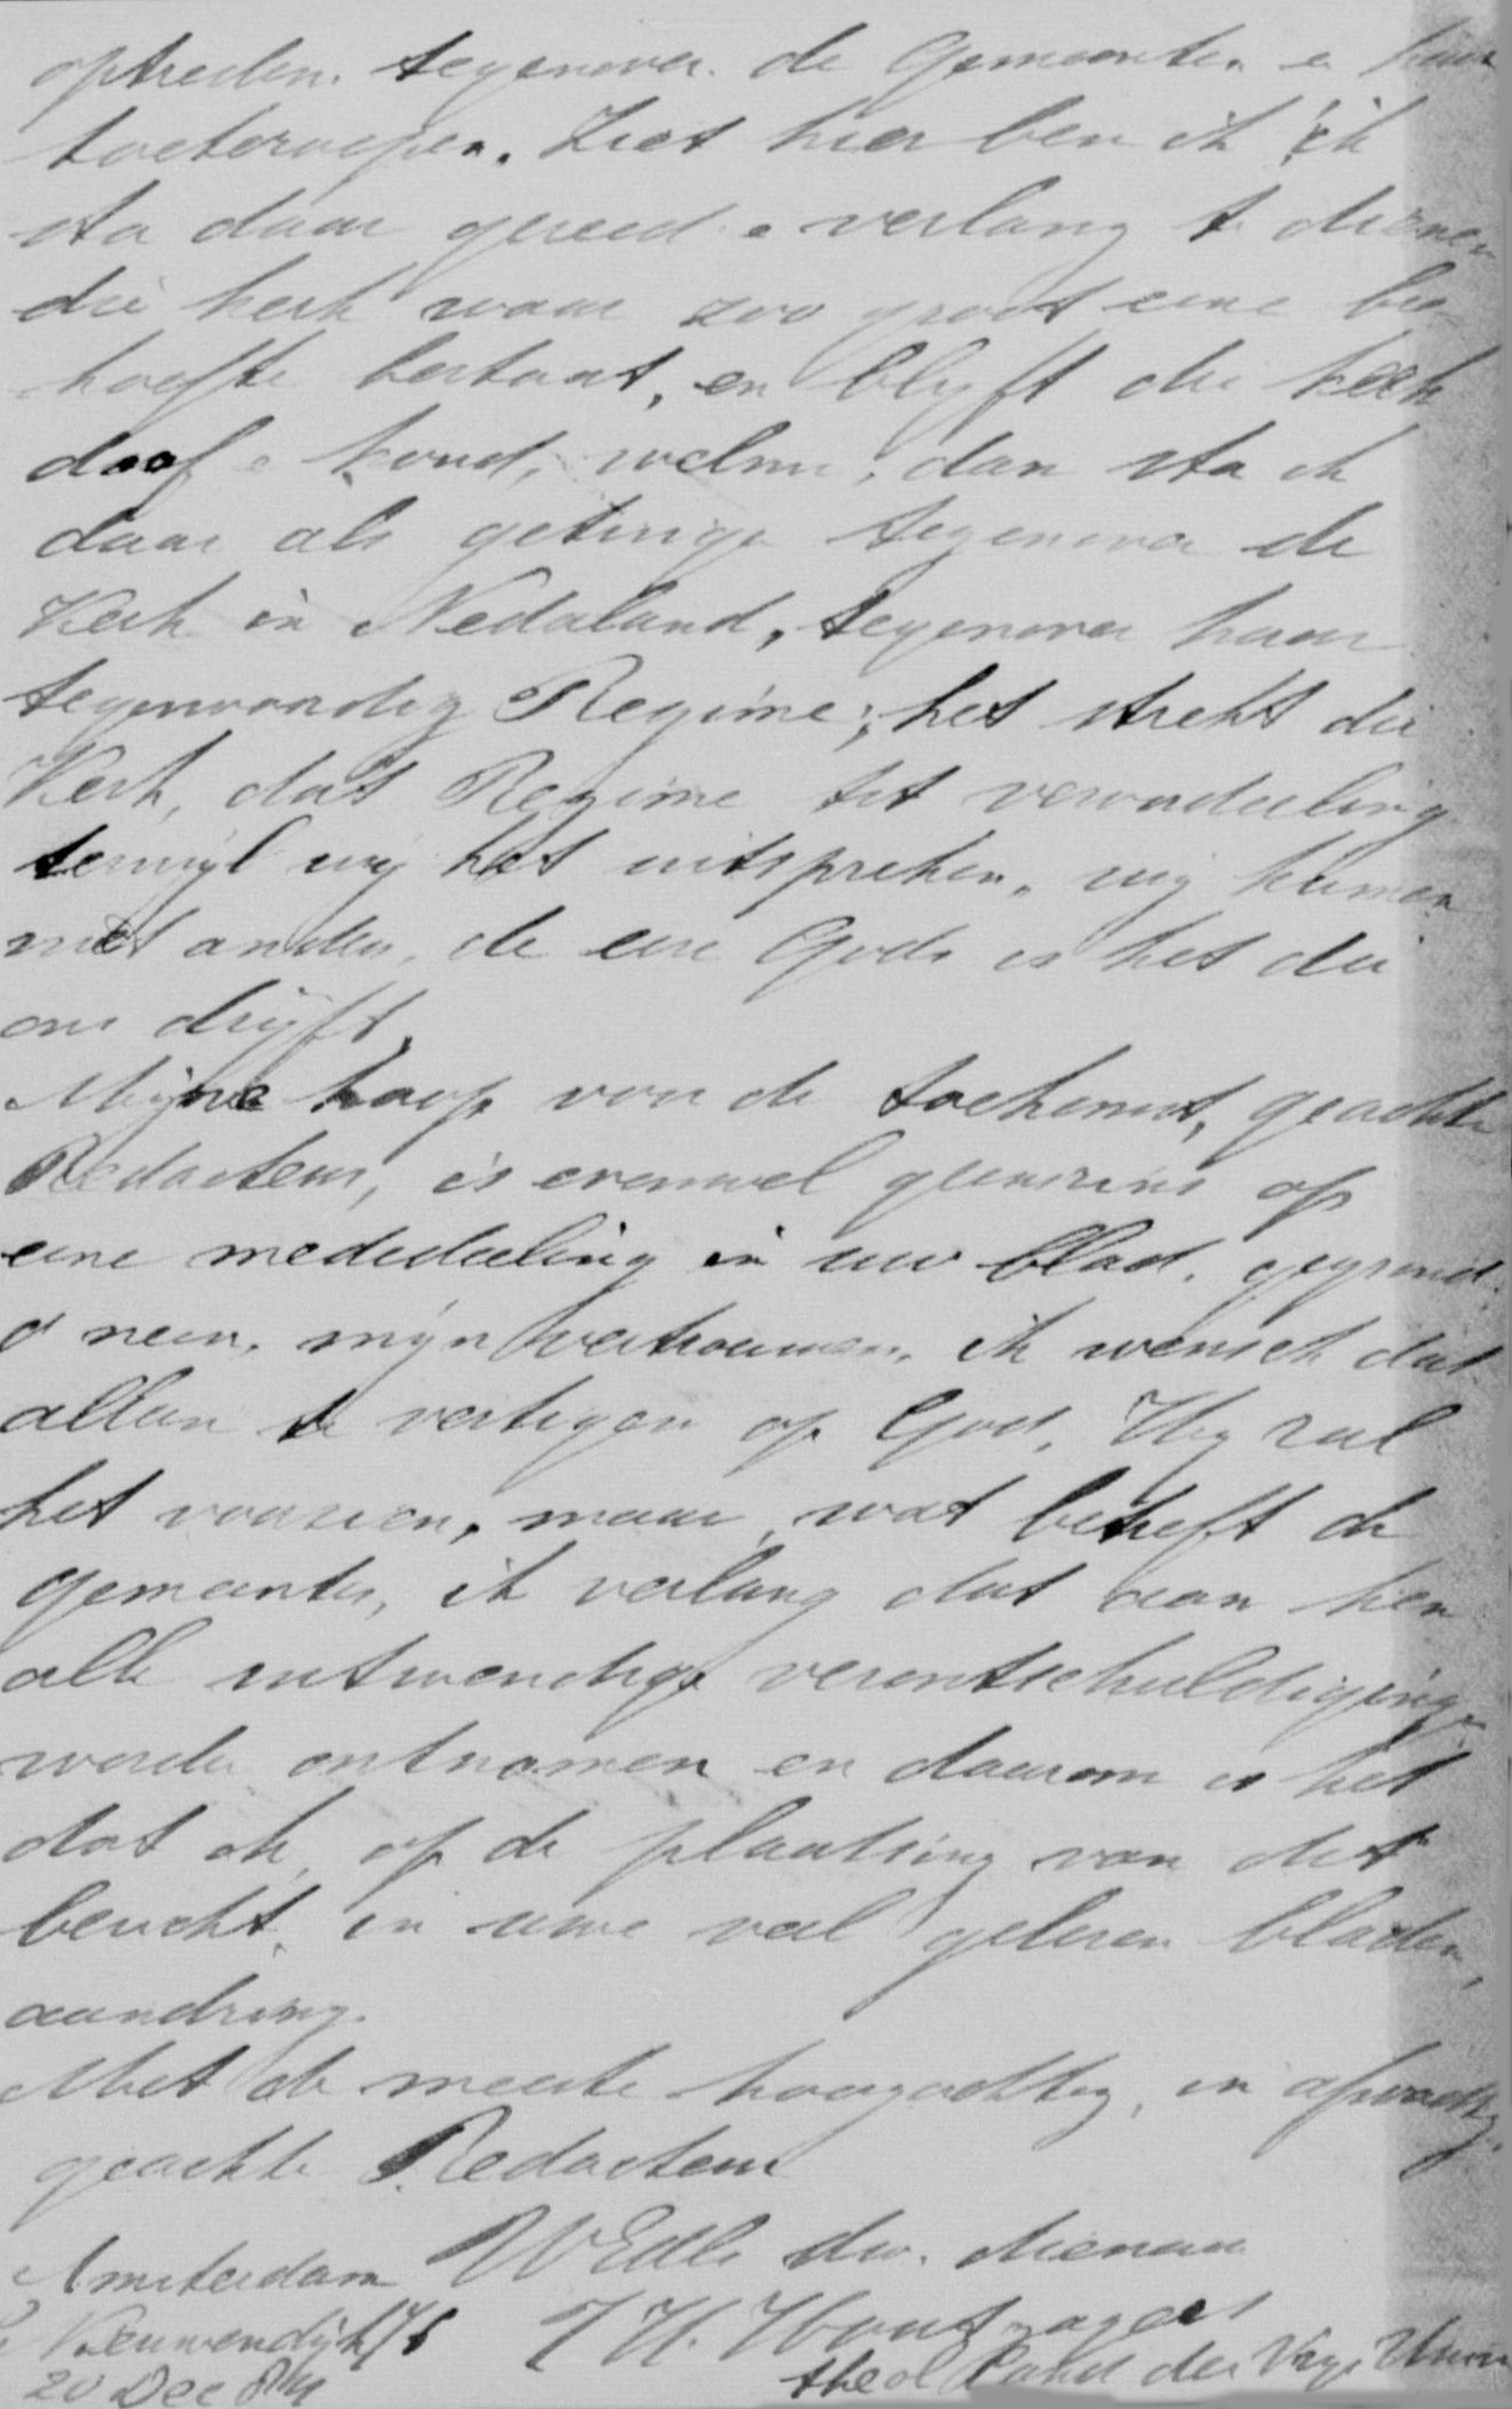 optreden tegenover de Gemeenten en hun
toeteroepen. Ziet hier ben ik ik
sta daar gereed e verlang te dienen
die kerk waar zoo groot eene be
hoefte bestaat, en blijft die kerk
doof e koud, welnu, dan sta ik
daar als getuige tegenover de
Kerk in Nederland, tegenover haar
tegenwoordig Regime; het strekt die
Kerk, dat Regime tot veroordeeling
terwijl wij het uitspreken, wij kunnen
niet anders, de eere Gods is het die
ons drijft.
Mijne hoop voor de toekomst, geachte
Redacteur, is evenwel geenszins op
eene mededeeling in uw blad, gegrond
o neen, mijn vertrouwen, ik wensch dat
alleen te vestigen op God, Hij zal
het voorzien, maar, wat betreft de
gemeenten, ik verlang dat aan hen
alle uitwendige verontschuldiging
worde ontnomen en daarom is het
dat ik, op de plaatsing van dit
bericht, in uwe veel gelezen bladen,
aandring.
Met de meeste hoogachting,
geachte Redacteur
Amsterdam WEdle dw. dienaar
Nieuwendijk J H. Houtzagers
20 Dec 84 theol Cand der Vrije Univ